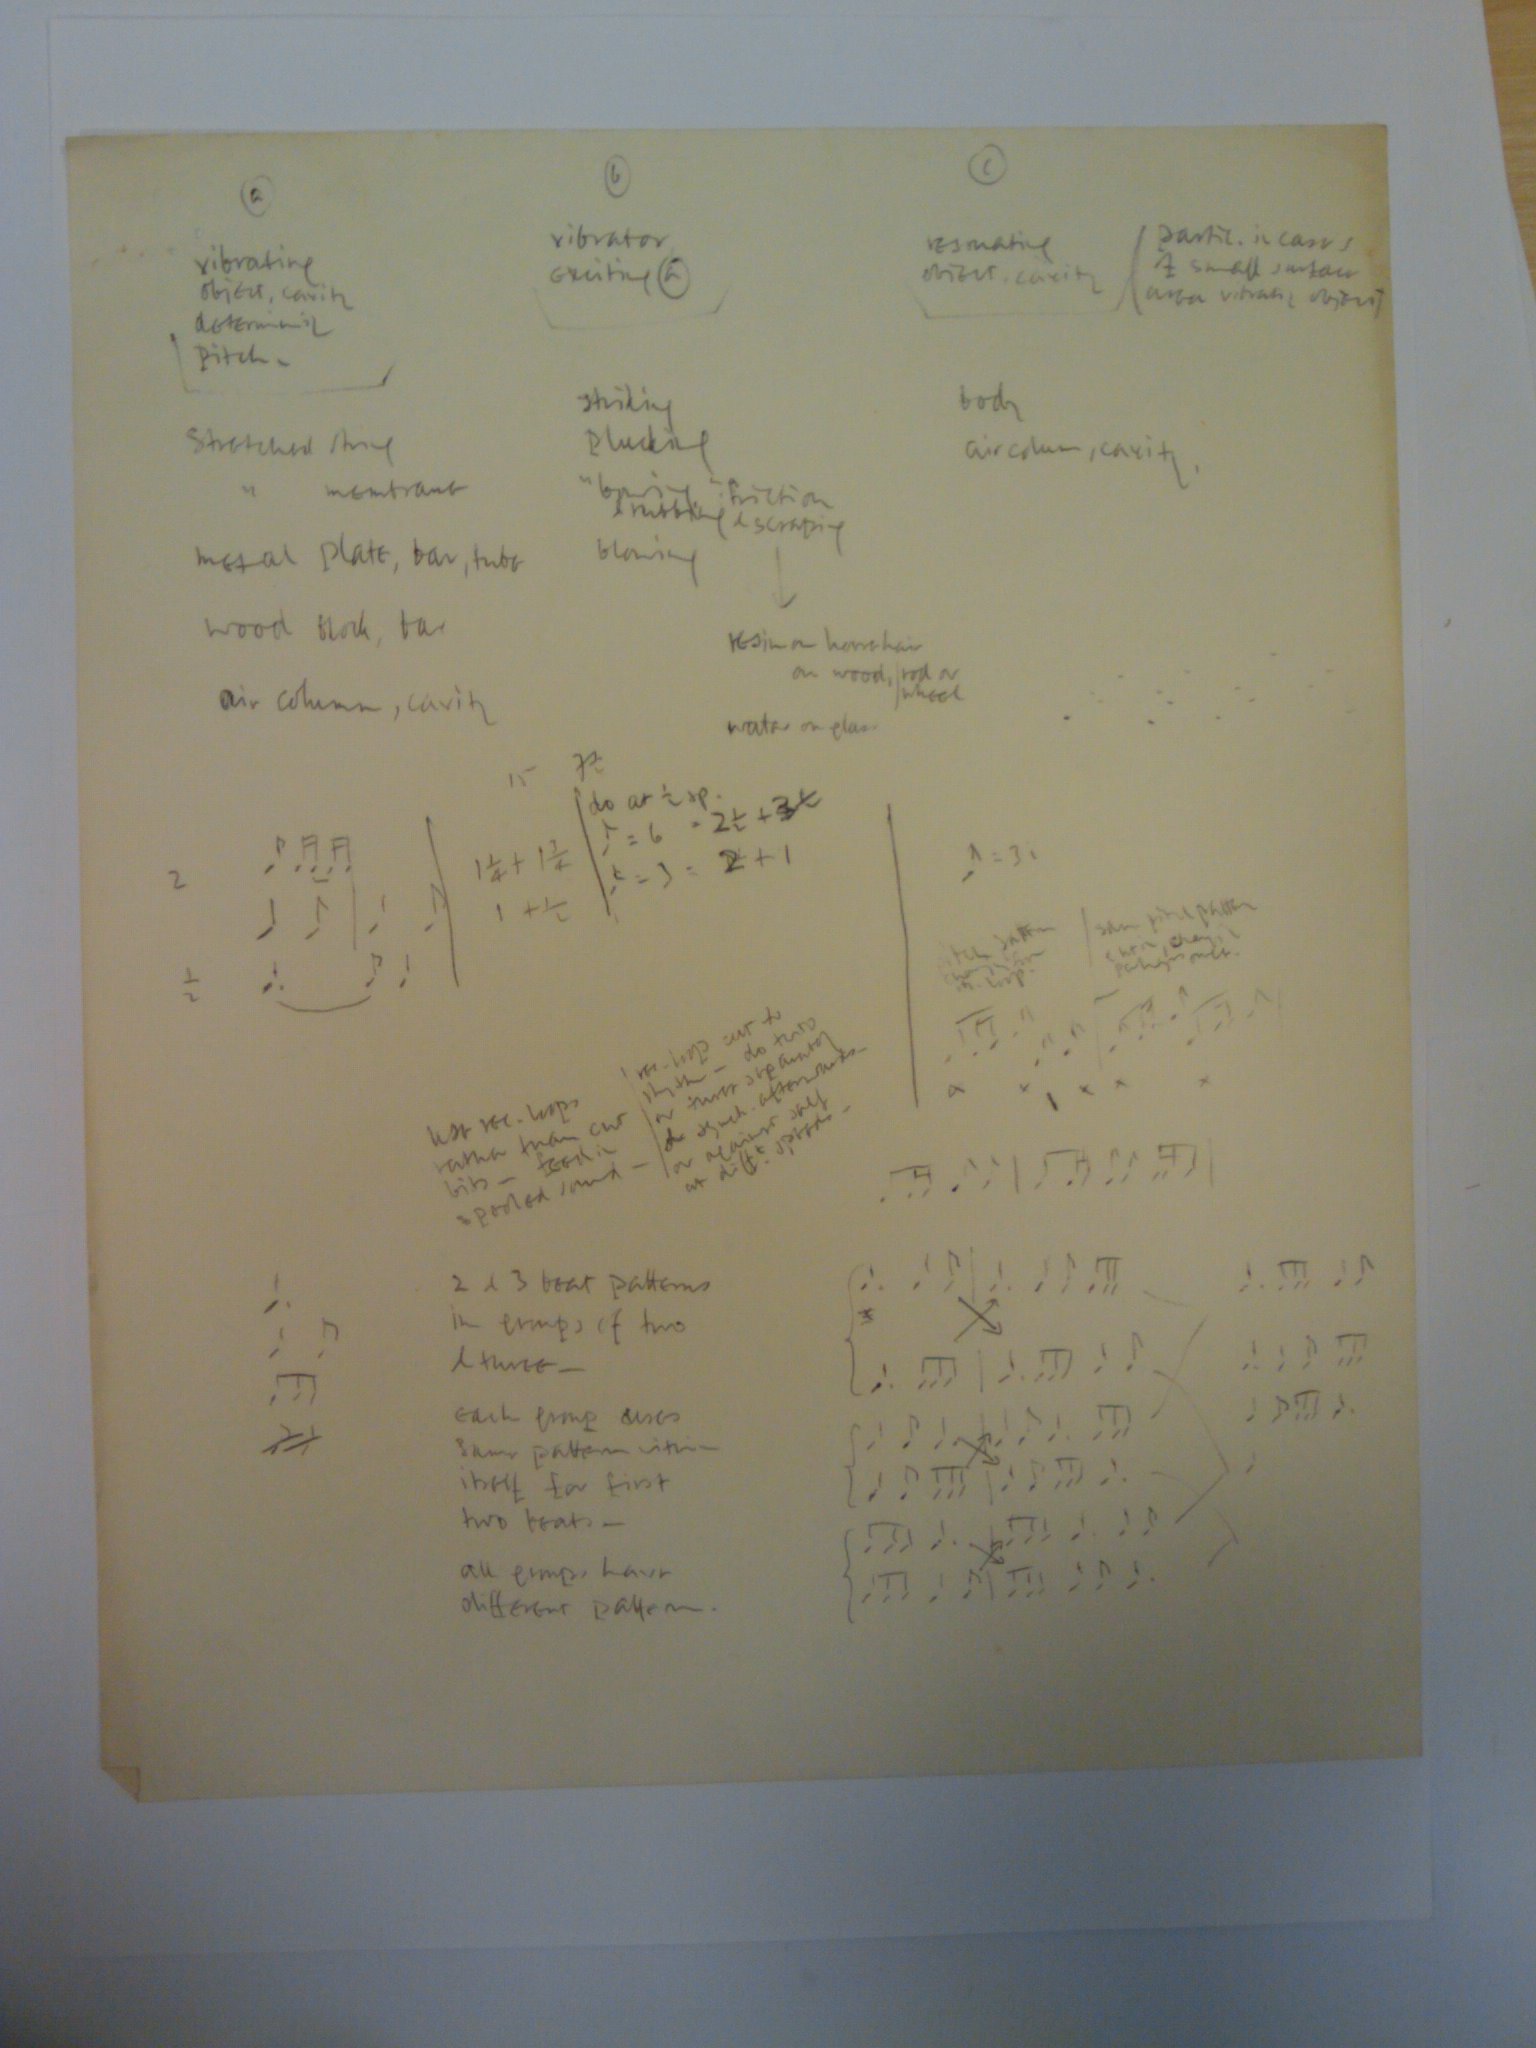 a
vibrating
object, cavity
determining
pitch.
stretched string
" membrane
metal plate, bar, tube
wood block, bar
air column, cavity
b
vibrator
exciting a
striking
plucking
"bowing" friction
& rubbing & scraping
blowing
resin on horsehair
on wood, rod or
wheel
water on glass
c
resonating
object, cavity
partic. in cases
of small surface
area vibrating object
body
air column, cavity,
15 7½
do at ½ sp.
= 6 = 2½ + 3½
= 3 = 2 + 1
2
1¼ + 1¾
1 + ½
½
= 3.
pitch pattern
loop.
same pitch pattern
use rec. loops
rather than cut
bits – feed in
spooled sound –
rec. loops cut to
rhythm – do two
or three separately
& synch. afterwards
or against self
at diff. speeds –
2 & 3 beat patterns
in groups of two
& three –
each group uses
same pattern within
itself for first
two beats –
all groups have
different pattern.